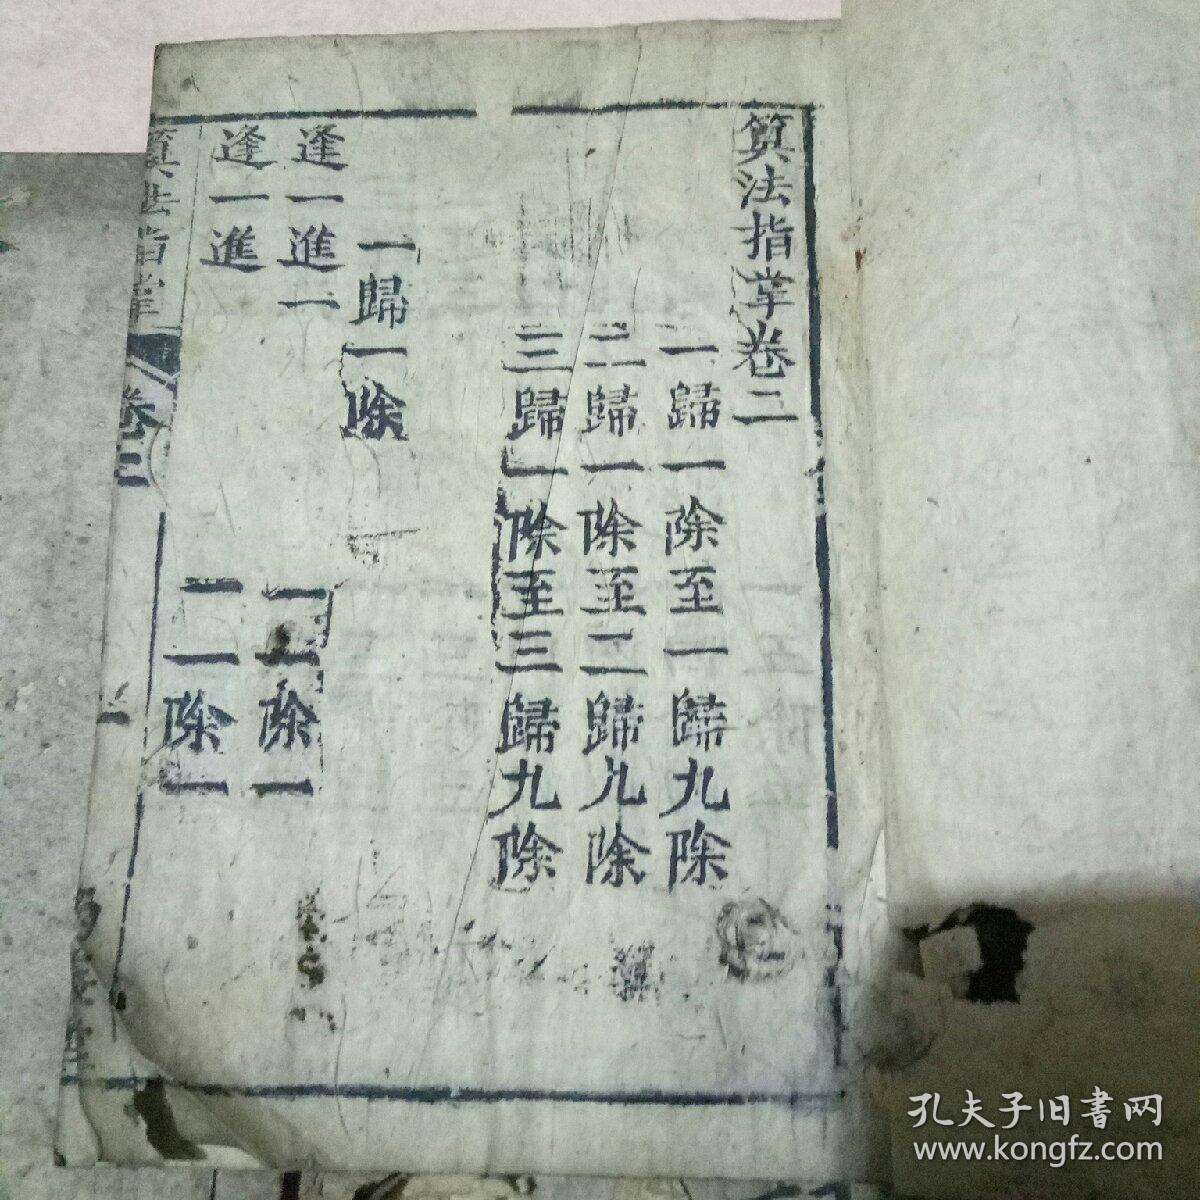 算法指掌卷二
一歸一除至一歸九除
二歸一除至二歸九除
三歸一除至三歸九除
一歸一除
逢一進一
一一除一
逢一進
一一除一
算法指掌
卷二
孔夫子旧書网
www.kongfz.com